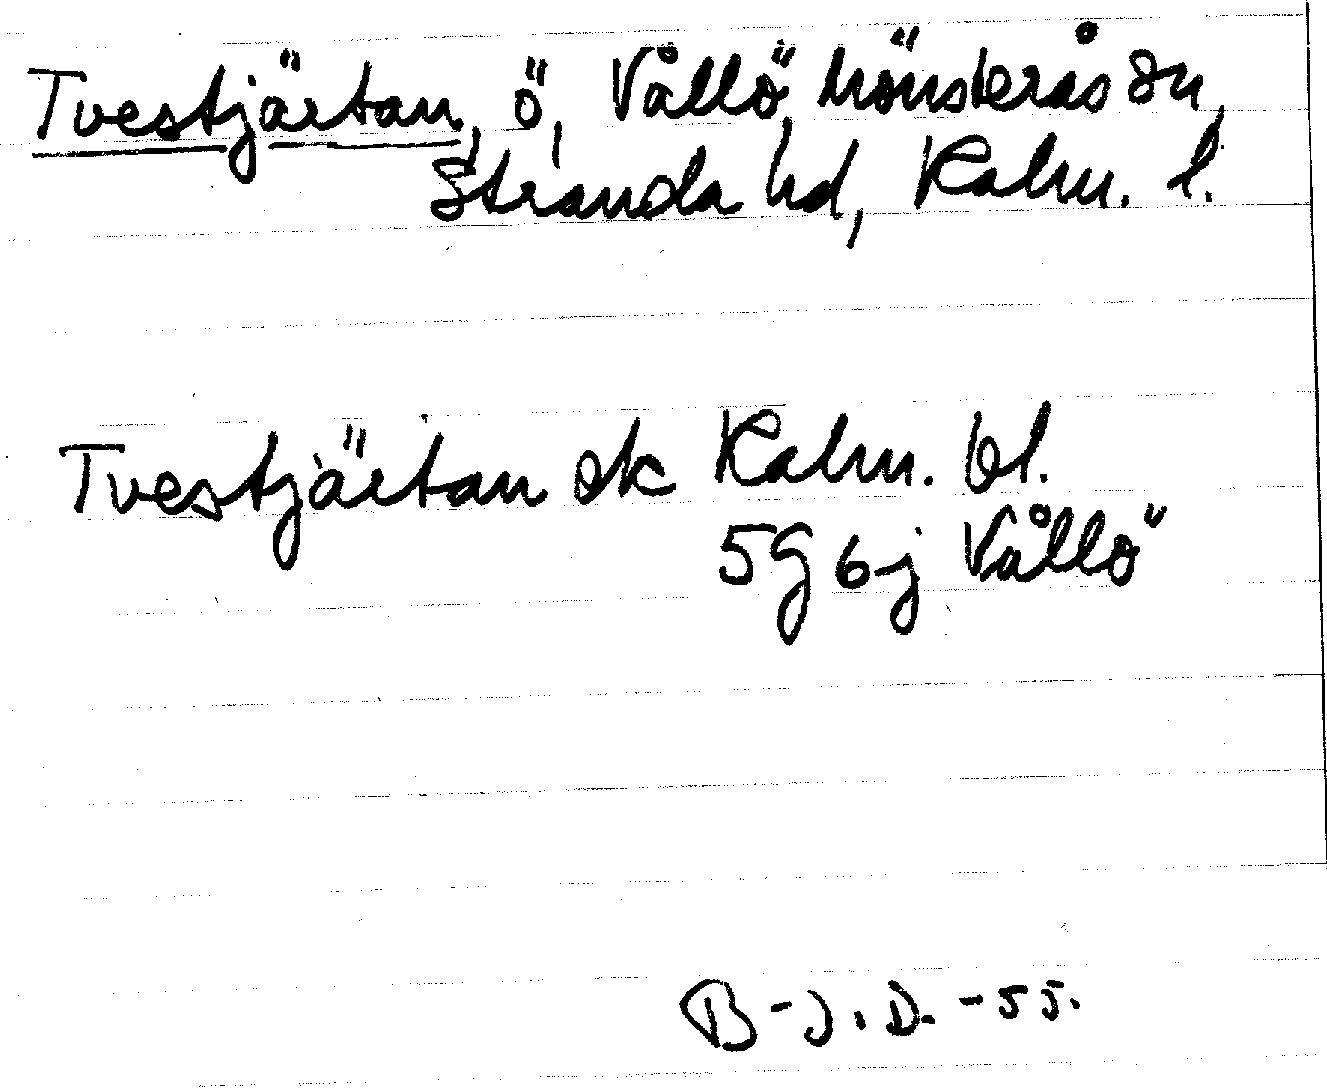 Tvestjärtan, ö, Vållö, Mönsterås sn,
Stranda hd, Kalm. l.
Tvestjärtan ek Kalm. bl.
5G 6j Vållö
B-J. D. -55.